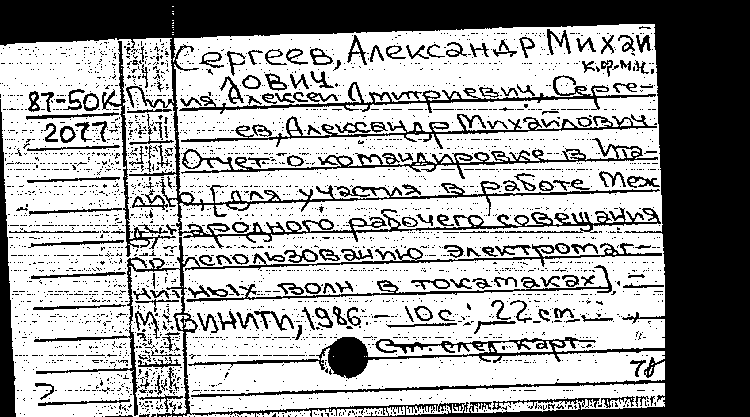 Сергеев, Александр Михай
лович.
к.ф.-м.н.
87-50К Пилия, Алексей Дмитриевич, Серге-
2077 ев, Александр Михайлович
Отчет о командировке в Ита-
лию, [для участия в работе Меж
дународного рабочего совещания
по использованию электромаг-
нитных волн в токамаках]. -
М.: ВИНИТИ, 1986. - 10 с.; 22 см. -
См. след. карт.